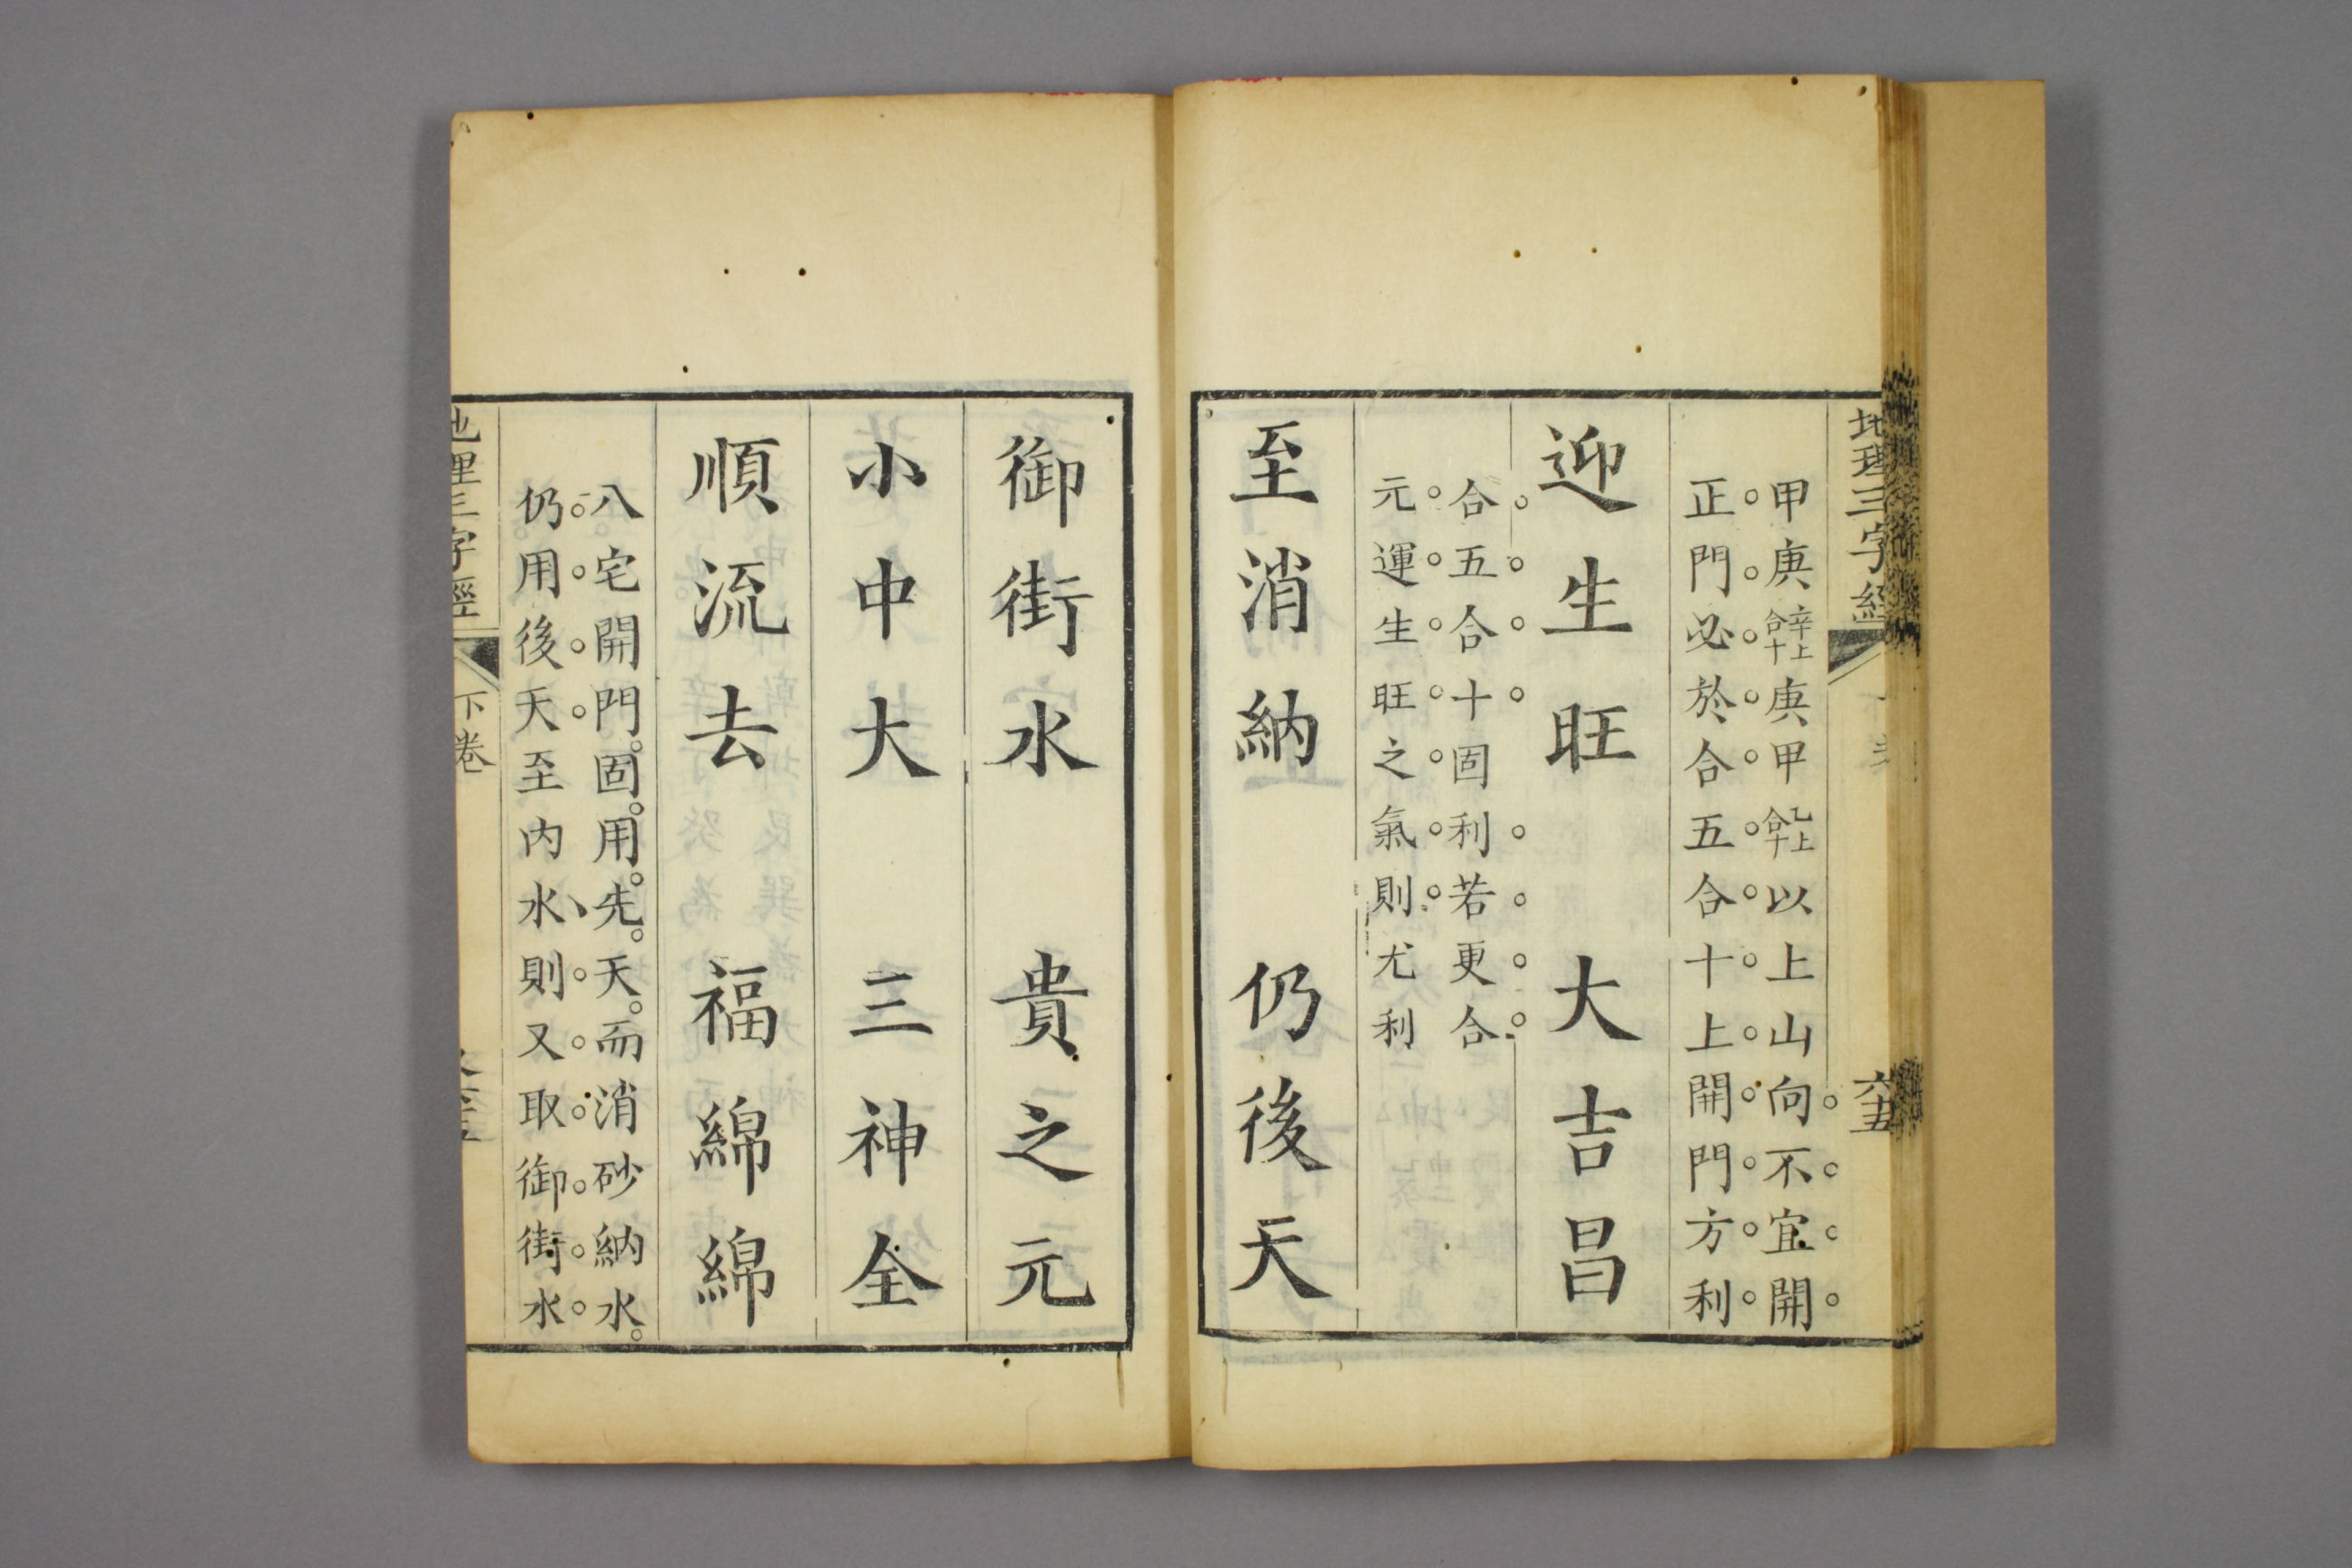 地理三字經
六十五
甲庚辛上合十庚甲乙上合十以上山向不宜開
正門必於合五合十上開門方利
迎生旺 大吉昌
合五合十固利若更合
元運生旺之氣則尤利
至消納 仍後天
御街水 貴之元
小中大 三神全
順流去 福綿綿
八宅開門固用先天而消砂納水
仍用後天至内水則又取御街水
地理三字經
下卷